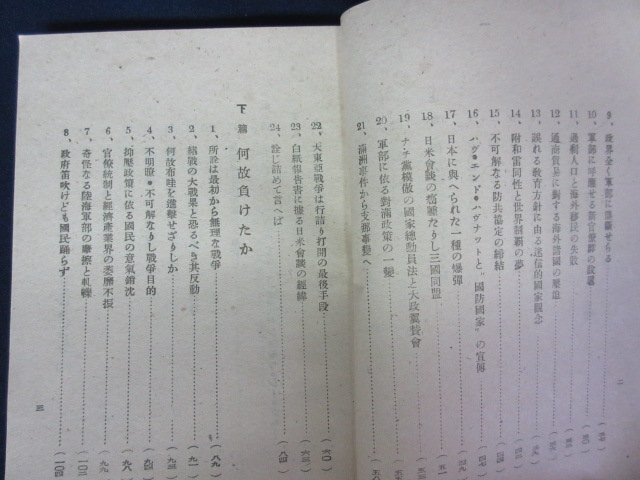 9、政界全く軍部に慴伏せらる
10、軍部に呼應せる新官僚群の擡頭
11、過剰人口と海外移民の失敗
12、通商貿易に對する海外諸國の壓迫
13、誤れる教育方針に由る迷信的國家觀念
14、附和雷同性と世界制覇の夢
15、不可解なる防共協定の締結
16、ハヴ・エンド・ハヴナットと、"國防國家"の宣傳……（四七）
17、日本に與へられた一種の爆彈
18、日米會談の癌腫たりし三國同盟
19、ナチ黨模倣の國家總動員法と大政翼賛會
20、軍部に依る對滿政策の一變
21、滿洲事件から支那事變へ……（五八）
二
22、大東亞戰爭は行詰り打開の最後手段……（六〇）
23、白紙報告書に據る日米會談の經緯……（六三）
24、詮じ詰めて言へば……（八四）
下篇 何故負けたか
1、所詮は最初から無理な戰爭……（八九）
2、緒戰の大戰果と恐るべき其反動……（九一）
3、何故布哇を進擊せざりしか……（九三）
4、不明瞭・不可解なりし戰爭目的……（九四）
5、抑壓政策に依る國民の意氣銷沈……（九八）
6、官僚統制と經濟產業界の萎靡不振……（九九）
7、奇怪なる陸海軍部の摩擦と軋轢……（一〇三）
8、政府笛吹けども國民踊らず……（一〇四）
三